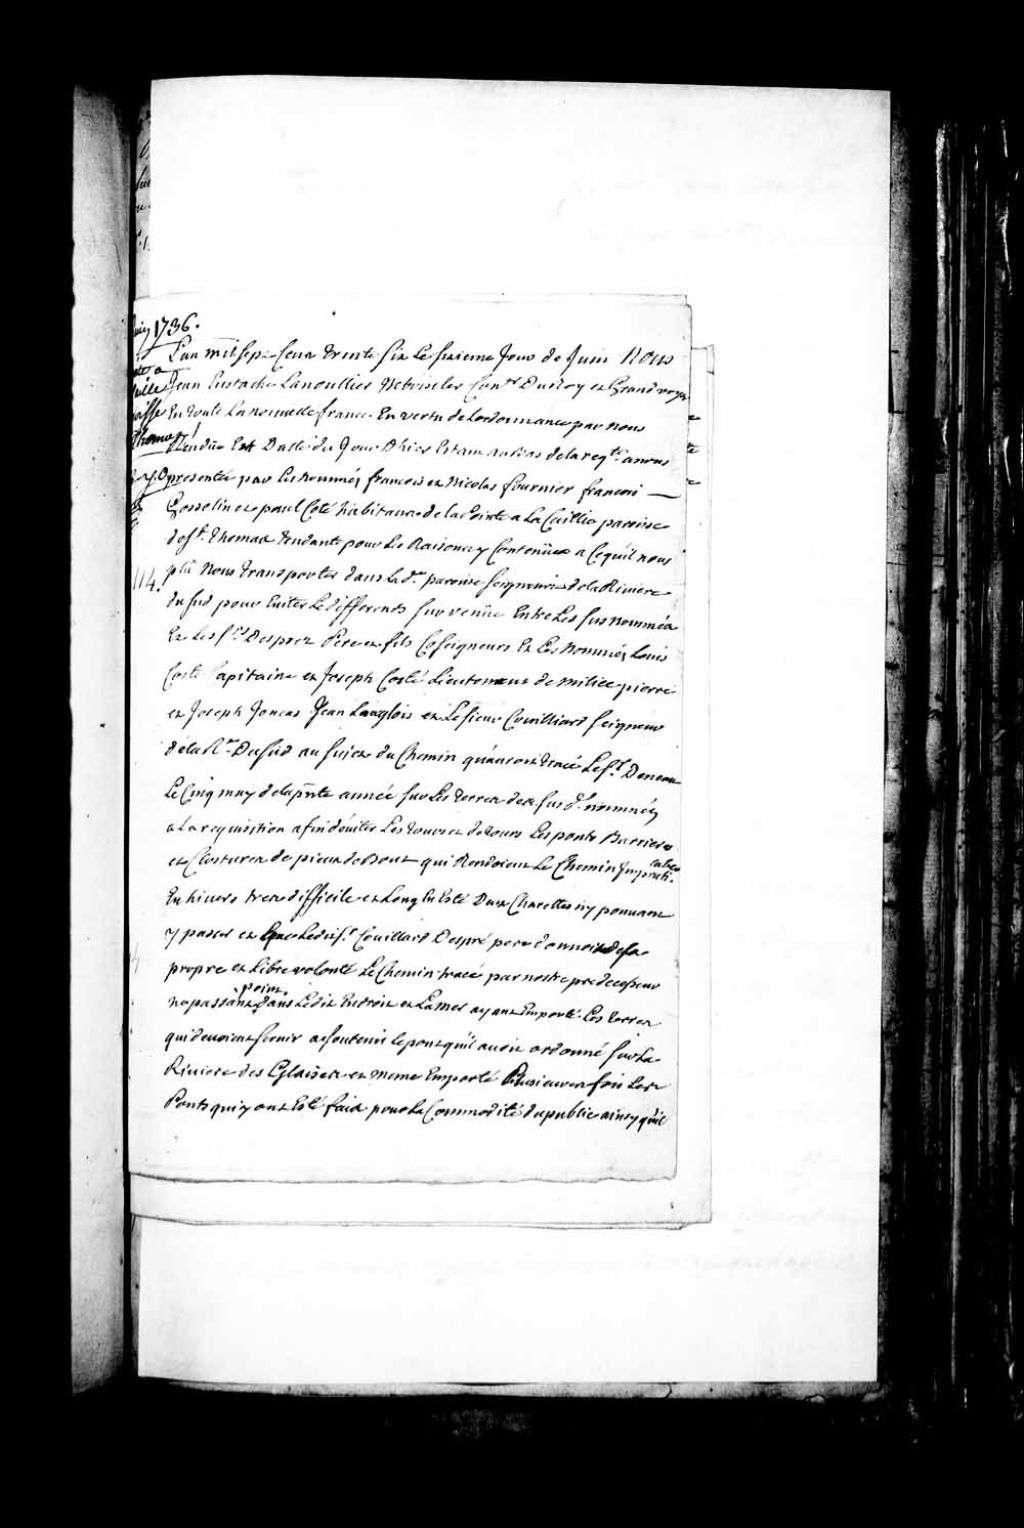 1736.
L'an mil sept Cent trente six Le sixieme Jour de Juin Nous
Jean Eustache Lanoullier de Boiscler Con.er Du Roy et Grand voyer
En toute La nouvelle france En vertu de Lordonnance par nous
Rendüe En Datte du Jour Dhier Estant au bas de la reqte. a nous
presentée par Les nommés francois et Nicolas fournier francois
Gosselin et paul Coté habitans de la Pointe a La Caillie paroisse
de St. Thomas tendante pour Les Raisons y Contenües a Cequil nous
114.
plû Nous transporter dans La de. paroisse seigneurie de la Riviere
du sud pour Eviter Le differends survenüe Entre Les sus nommés
Et Les Srs. Desprez Pere et fils Coseigneurs Et Les Nommés Louis
Costé Capitaine et Joseph Costé Lieutenant de milice pierre
et Joseph Joncas Jean Langlois et Le sieur Couilliard seigneur
de la Rre. Du sud au sujet du Chemin quauroit tracé Le Sr. Deneau
Le Cinq may de la pnte année sur Les terres des sus d. nommés
a La requisition afin déviter Les tours et detours Les ponts Barrieres
et Clostures de pieux de Bout qui Rendoient Le Chemin Imprati-
cable
En hivers tres difficile et Long En Esté Deux Charettes ny pouvant
y passer et que Ledit Sr. Couillard Despré pere donnoit de sa
propre et Libre volonté Le Chemin tracé par nostre predecesseur
ne passant point dans Ledit Endroit et La mer ayant Emporté Les terres
qui devoient servir a soutenir le pont quil avoit ordonné sur La
Riviere des Eglaises et meme Emporté Plusieurs fois Les
Ponts qui y ont Esté faits pour La Commodité du public ainsy quil